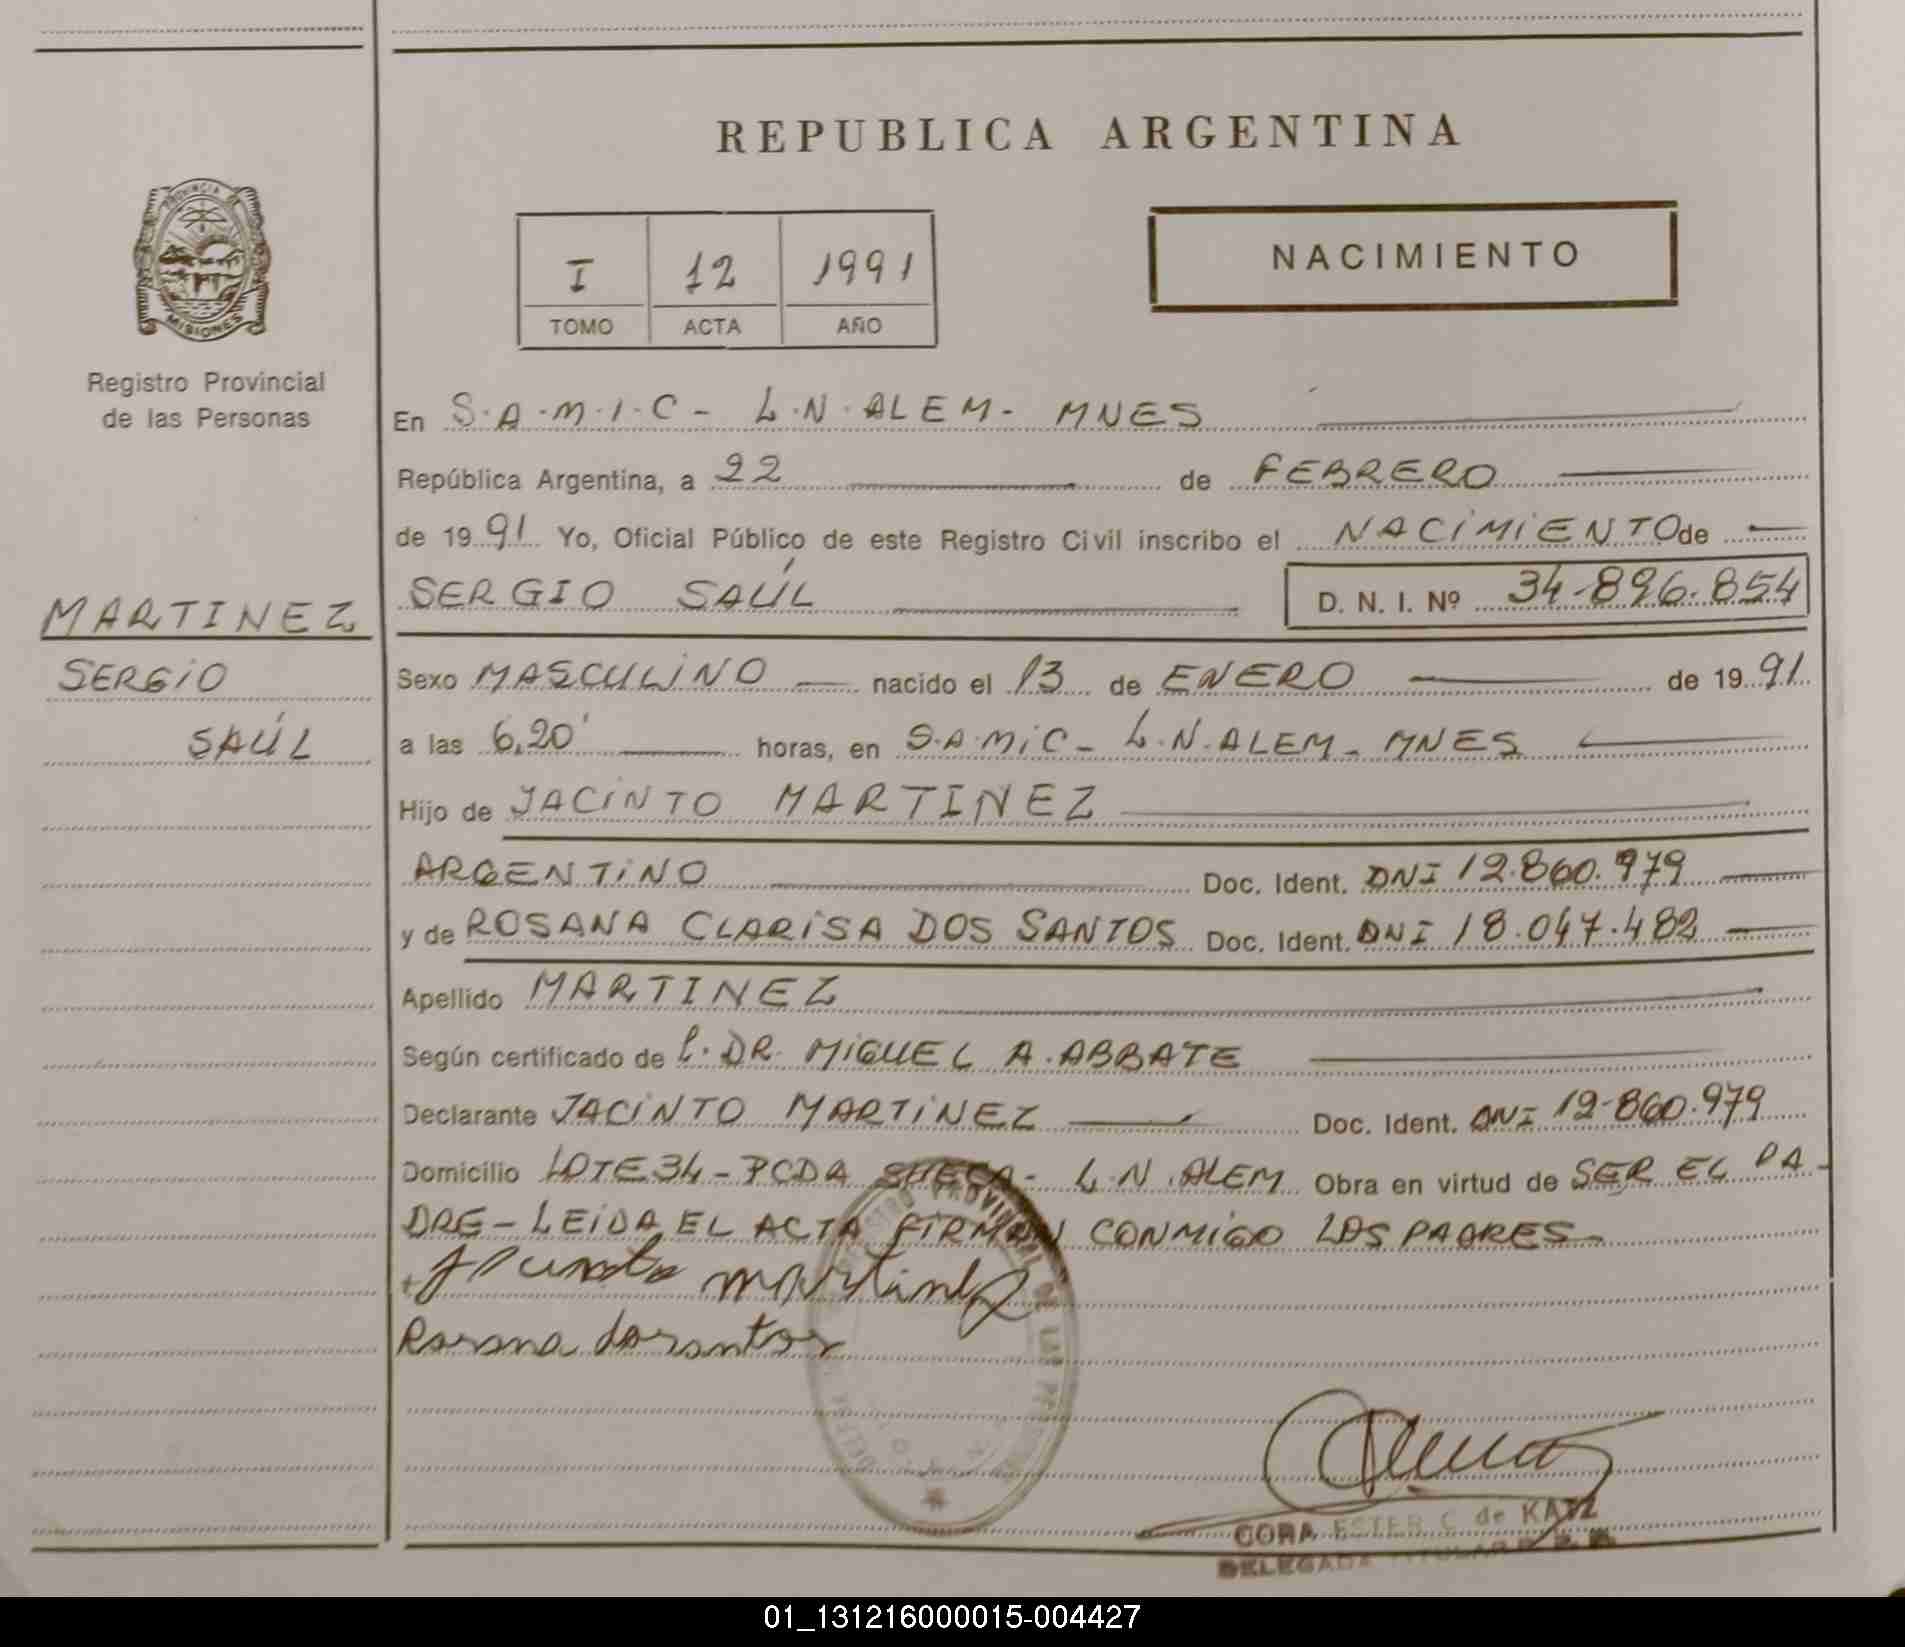 REPUBLICA ARGENTINA
PROVINCIA DE
MISIONES
Registro Provincial
de las Personas
I 12 1991
TOMO ACTA AÑO
NACIMIENTO
En S.A.M.I.C - L.N.ALEM - MNES
República Argentina, a 22 de FEBRERO
de 1991 Yo, Oficial Público de este Registro Civil inscribo el NACIMIENTO de
SERGIO SAÚL D. N. I. Nº 34.896.854
MARTINEZ
SERGIO
SAÚL
Sexo MASCULINO nacido el 13 de ENERO de 1991
a las 6,20' horas, en S.A.MIC - L.N.ALEM - MNES
Hijo de JACINTO MARTINEZ
ARGENTINO Doc. Ident. DNI 12.860.979
y de ROSANA CLARISA DOS SANTOS Doc. Ident. DNI 18.047.482
Apellido MARTINEZ
Según certificado de DR. MIGUEL A. ABBATE
Declarante JACINTO MARTINEZ Doc. Ident. DNI 12.860.979
Domicilio LOTE 34 - PCDA - L.N.ALEM Obra en virtud de SER EL PA-
DRE - LEIDA EL ACTA FIRMAN CONMIGO LOS PADRES -
martinez
Rosana dosantos
REGISTRO PROVINCIAL DE LAS
CORA ESTER C de KATZ
DELEGADA TITULAR
01_131216000015-004427